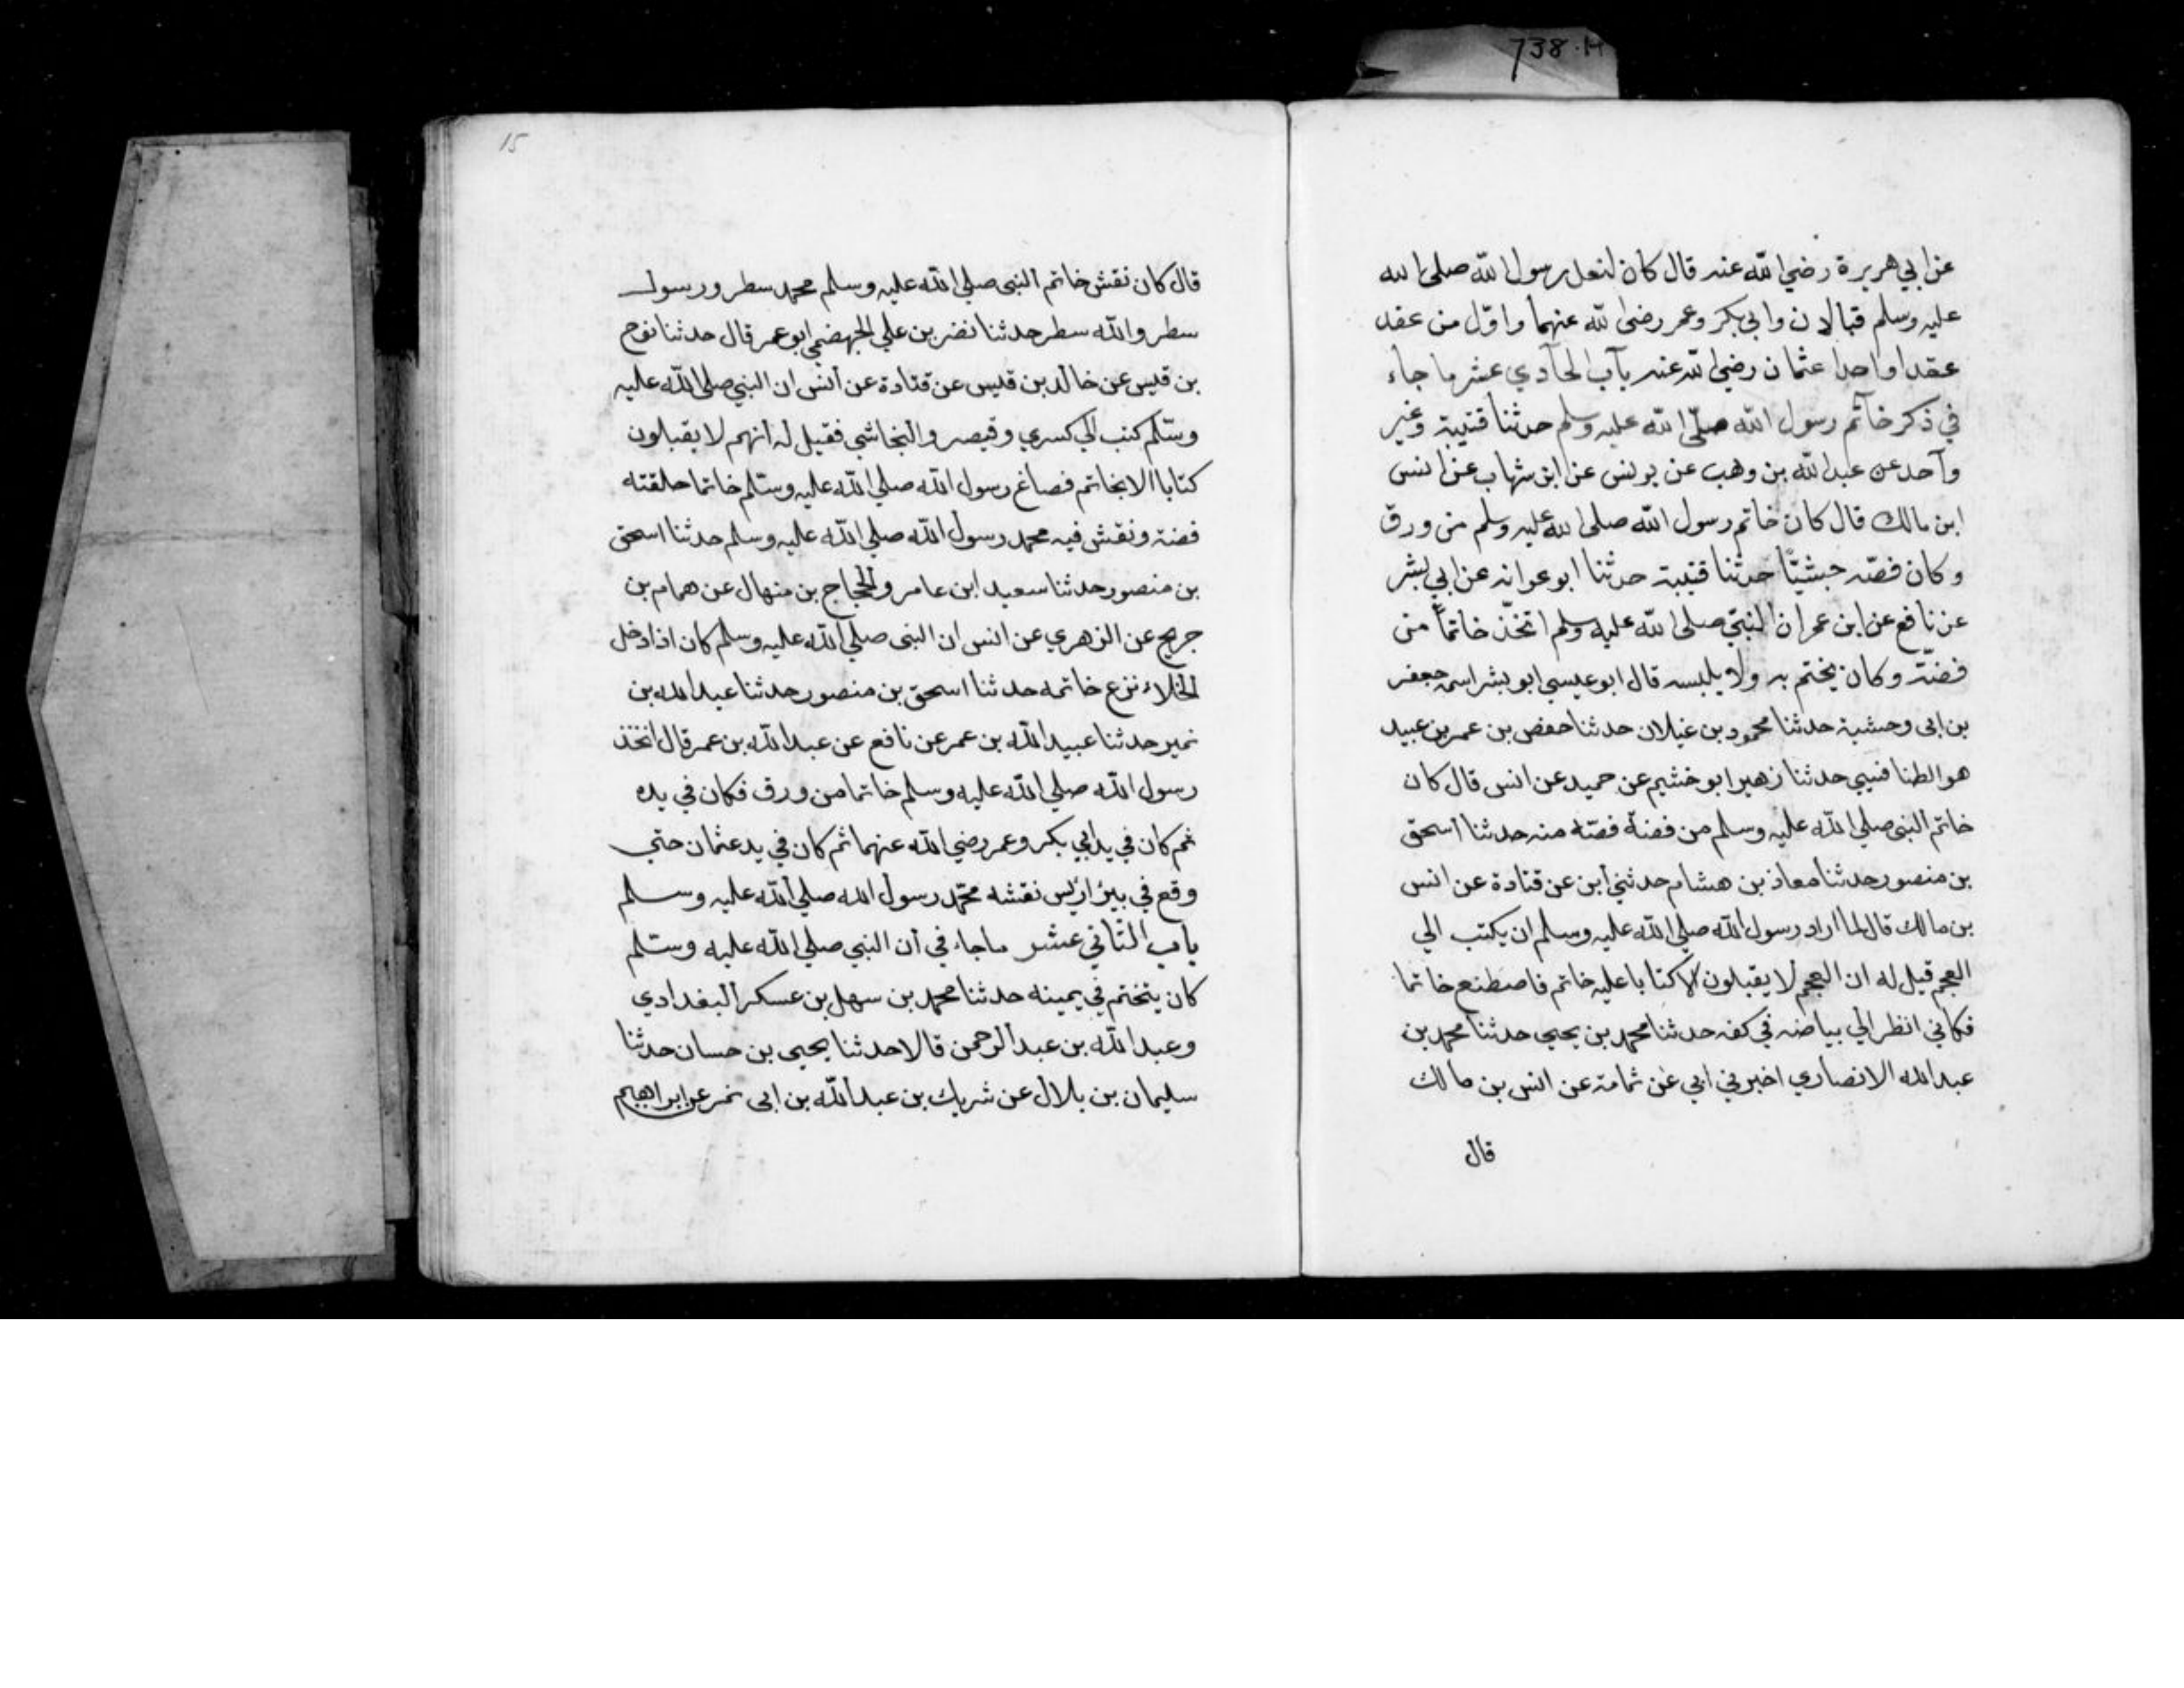 738.H
عن ابي هريرة رضي الله عنه قال كان لنعل رسول الله صلى الله
عليه وسلم قبالان وابي بكر وعمر رضى الله عنهما واوّل من عقد
عقدا واحدا عثمان رضي الله عنه باب الحادي عشر ما جاء
في ذكر خاتم رسول الله صلّى الله عليه وسلم حدثنا قتيبة وغير
واحد عن عبد الله بن وهب عن يونس عن ابن شهاب عن انس
ابن مالك قال كان خاتم رسول الله صلى الله عليه وسلم من ورق
وكان فصّه حبشيّا حدثنا قتيبة حدثنا ابو عوانه عن ابي بشر
عن نافع عن ابن عمر ان النبيّ صلى الله عليه وسلم اتخّذ خاتماً من
فضّة وكان يختم به ولا يلبسه قال ابو عيسي ابو بشر اسمه جعفر
بن ابى وحشية حدثنا محمود بن غيلان حدثنا حفص بن عمر بن عبيد
هو الطنافسي حدثنا زهير ابو خثيم عن حميد عن انس قال كان
خاتم النبى صلي الله عليه وسلم من فضة فصّه منه حدثنا اسحق
بن منصور حدثنا معاذ بن هشام حدثني ابن عن قتادة عن انس
بن مالك قال لما اراد رسول الله صلي الله عليه وسلم ان يكتب الي
العجم قيل له ان العجم لا يقبلون الا كتابا عليه خاتم فاصطنع خاتما
فكاني انظر الي بياضه في كفه حدثنا محمد بن يحيي حدثنا محمد بن
عبد الله الانصاري اخبرني ابي عن ثمامة عن انس بن مالك
قال
15
قال كان نقش خاتم النبى صلي الله عليه وسلم محمد سطر ورسول
سطر والله سطر حدثنا نضر بن علي الجهضمي ابو عمر قال حدثنا نوح
بن قيس عن خالد بن قيس عن قتادة عن انس ان النبي صلى الله عليه
وسّلم كتب الي كسري وقيصر والنجاشي فقيل له انهم لا يقبلون
كتابا الا بخاتم فصاغ رسول الله صلي الله عليه وسّلم خاتما حلقته
فضة ونقش فيه محمد رسول الله صلي الله عليه وسلم حدثنا اسحق
بن منصور حدثنا سعيد ابن عامر والحجاج بن منهال عن همام بن
جريج عن الزهري عن انس ان النبى صلي الله عليه وسلم كان اذا دخل
الخلاء نزع خاتمه حدثنا اسحق بن منصور حدثنا عبد الله بن
نمير حدثنا عبيد الله بن عمر عن نافع عن عبد الله بن عمر قال اتخذ
رسول الله صلي الله عليه وسلم خاتما من ورق فكان في يده
ثم كان في يد ابي بكر وعمر رضي الله عنهما ثم كان في يد عثمان حتي
وقع في بيئر اريس نقشه محمّد رسول الله صلي الله عليه وسلم
باب الثاني عشر ماجاء في ان النبي صلي الله عليه وسّلم
كان يتختم في يمينه حدثنا محمد بن سهل بن عسكر البغدادي
وعبد الله بن عبد الرحمن قالا حدثنا يحيى بن حسان حدثنا
سليمان بن بلال عن شريك بن عبد الله بن ابى نمر عن ابراهيم